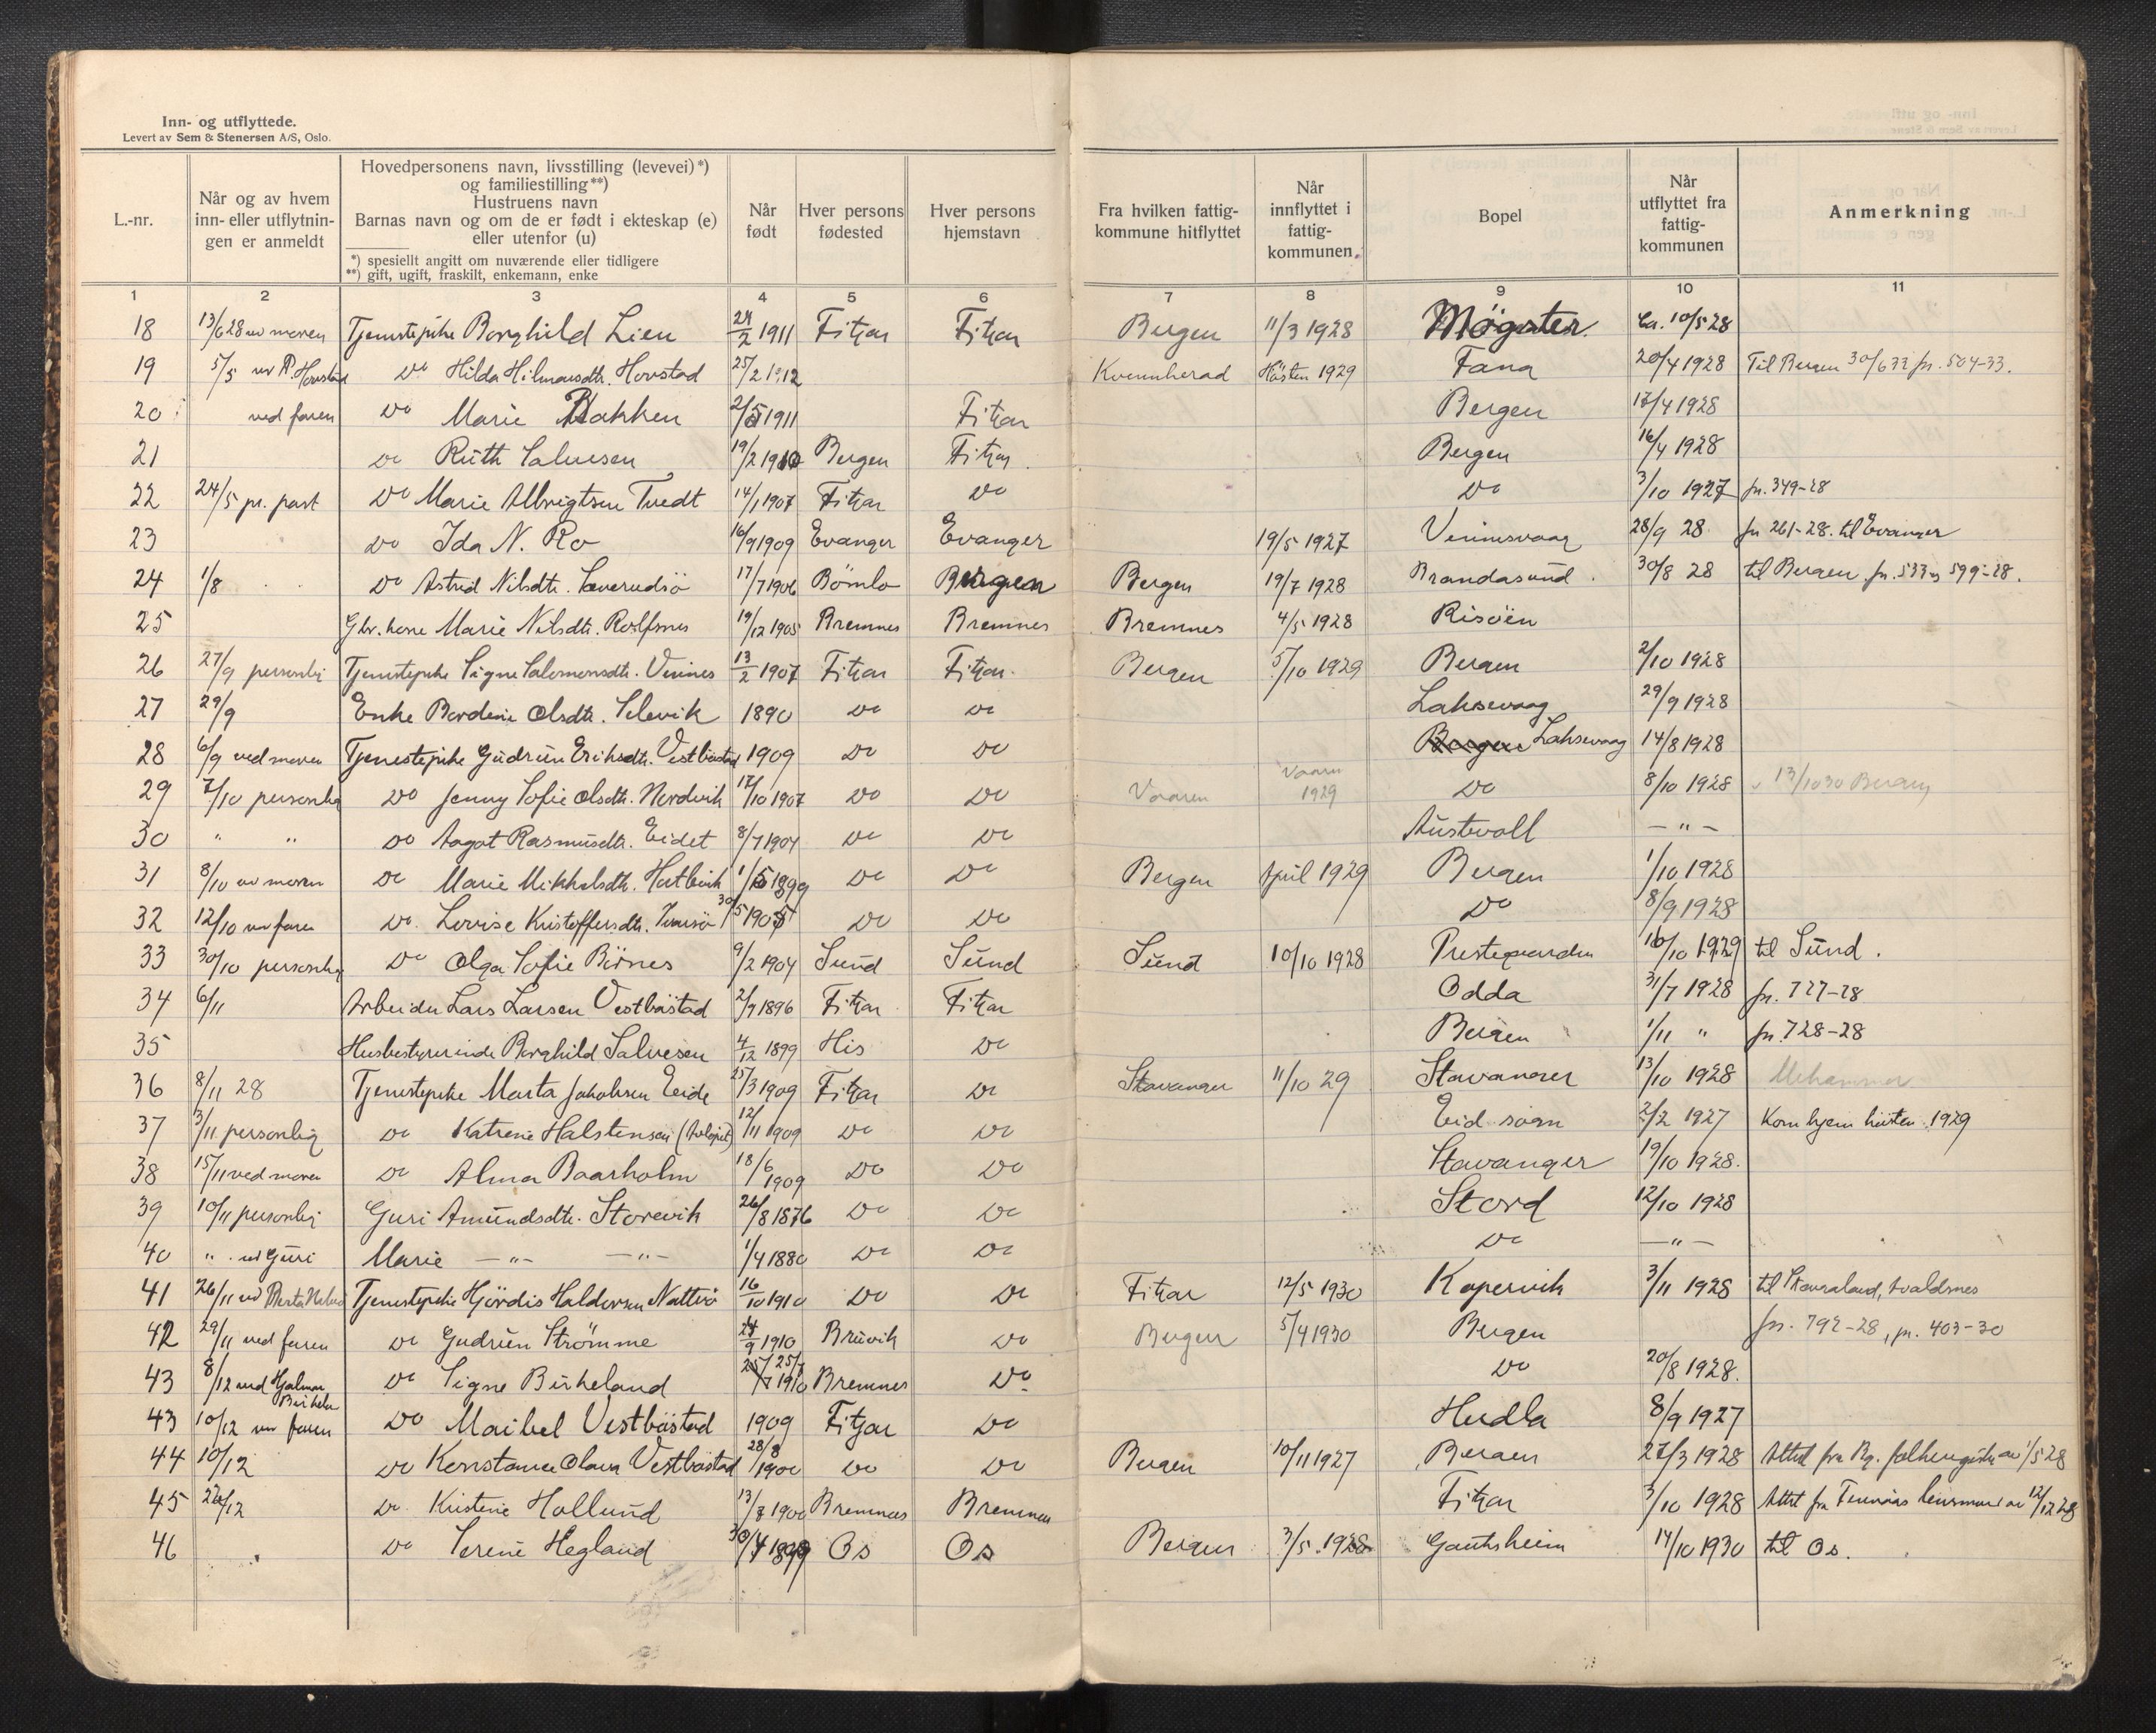 Inn- og utflyttede.
Levert av Sem & Stenersen A/S, Oslo.
L.-nr.
Når og av hvem inn- eller utflytnin-gen er anmeldt
Hovedpersonens navn, livsstilling (levevei)*) og familiestilling**)
Hustruens navn
Barnas navn og om de er født i ekteskap (e) eller utenfor (u)
*) spesiellt angitt om nuværende eller tidligere
**) gift, ugift, fraskilt, enkemann, enke
Når født
Hver persons fødested
Hver persons hjemstavn
Fra hvilken fattig-kommune hitflyttet
Når innflyttet i fattig-kommunen
Bopel
Når utflyttet fra fattig-kommunen
Anmerkning
1 2 3 4 5 6 7 8 9 10 11
18 13/6 28 av moren Tjenestepike Borghild Lien 2/1911 Fitjar Fitjar Bergen 11/3 1928 Møgster Ca. 10/5 28
19 5/5 Hovstad Do Hilda Hilmarsdtr. Hovstad 25/2 1912 Kvennherad Hösten 1929 Fana 20/4 1928 Til Bergen 30/6 33 jn. 504-33.
20 ved faren Do Marie Bakken 2/5 1911 Fitjar Bergen 17/4 1928
21 Do Ruth Salvesen 19/2 1910 Bergen Fitjar Bergen 16/4 1928
22 24/5 pr. post Do Marie Albrigtsen Tvedt 14/1 1907 Fitjar Do Do 3/10 1927 jn. 349-28
23 Do Ida N. Ro 16/9 1909 Evanger Evanger 19/5 1927 Vinnesvaag 28/9 28 jn 261-28. til Evanger
24 1/8 Do Astrid Nilsdtr. 17/7 1906 Bömlo Bergen Bergen 19/7 1928 Brandasund 30/8 28 til Bergen. jn. 533 og 599-28.
25 Marie Nilsdtr. Rolfsnes 19/12 1905 Bremnes Bremnes Bremnes 4/5 1928 Risöen
26 27/9 personlig Tjenestepike Signe Salomonsdtr. Vinnes 13/2 1907 Fitjar Fitjar Bergen 5/10 1929 Bergen 2/10 1928
27 29/9 Enke Bordine Olsdtr. Selevik 1890 Do Do Laksevaag 29/9 1928
28 6/9 ved moren Tjenestepike Gudrun Eriksdtr. Vestböstad 1909 Do Do Bergen Laksevaag 14/8 1928
29 7/10 personlig Do Jenny Sofie Olsdtr. Nordvik 17/10 1907 Do Do Vaaren Vaaren 1929 Do 8/10 1928 13/10 30 Bergen
30 " " Do Aagot Rasmusdtr. Eidet 8/7 1904 Do Do Austvoll — " —
31 8/10 av moren Do Marie Mikkelsdtr. Hatlevik 1/5 1899 Do Do Bergen April 1929 Bergen 1/10 1928
32 12/10 av faren Do Lovise Kristoffersdtr. 30/5 1905 Do Do Do 8/9 1928
33 30/10 personlig Do Olga Sofie Birnes 9/2 1904 Sund Sund Sund 10/10 1928 Prestegarden 16/10 1929 til Sund.
34 6/11 Arbeider Lars Larsen Vestböstad 2/9 1896 Fitjar Fitjar Odda 31/7 1928 jn. 727-28
35 Husbestyrerinde Borghild Salvesen 4/12 1899 His Do Bergen 1/11 " jn. 728-28
36 8/11 28 Tjenestepike Marta Jakobsen Eide 25/3 1909 Fitjar Do Stavanger 11/10 29 Stavanger 13/10 1928 Mehammer
37 3/11 personlig Do Katrine Halstensen 12/11 1909 Do Do Eid sogn 2/2 1927 Kom hjem hösten 1929
38 15/11 ved moren Do Alma Baarholm 18/6 1909 Do Do Stavanger 19/10 1928.
39 10/11 personlig Guri Amundsdtr. Storevik 26/8 1876 Do Do Stord 12/10 1928
40 " ved Guri Marie — " — — " — 1/4 1880 Do Do Do — " —
41 26/11 ved Tjenestepike Hjördis Haldorsen Nattrö 16/10 1910 Do Do Fitjar 12/5 1930 Kopervik 3/11 1928 til Avaldsnes
42 29/11 ved faren Do Gudrun Strömme 9 1910 Bruvik Do Bergen 5/4 1930 Bergen jn. 792-28, jn. 403-30
43 8/12 ved Hjalmar Birkeland Do Signe Birkeland 25/7 1910 Bremnes Do Do 20/8 1928.
43 10/12 av faren Do Maibel Vestböstad 1909 Fitjar Do Herdla 8/9 1927
44 10/12 Do Konstance Olava Vestböstad 28/8 1900 Do Do Bergen 10/11 1927 Bergen 27/3 1928 Attest fra Bg. folkeregister av 1/5 28
45 22/12 Do Kristine Hollund 13/8 1900 Bremnes Bremnes Fitjar 3/10 1928 Attst fra Finnaas lensmann av 12/12 28
46 Do Serine Hegland 30/4 1899 Os Os Bergen 3/5 1928 Gautsheim 14/10 1930 til Os.